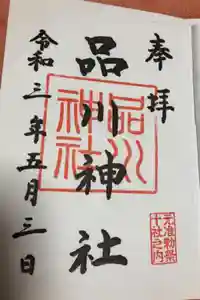 奉拝
元准勅祭
十社之内
品川神社
品川
神社
令和三年五月三日